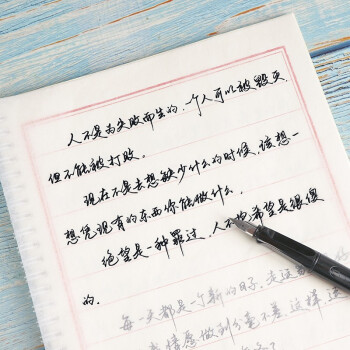 人不是为失败而生的，一个人可以被毁灭，
但不能被打败。
现在不是去想缺少什么的时候，该想一
想凭现有的东西你能做什么。
绝望是一种罪过，人不抱希望是很傻
的。
每一天都是一个新的日子，走运
情愿做到分毫不差，这样运